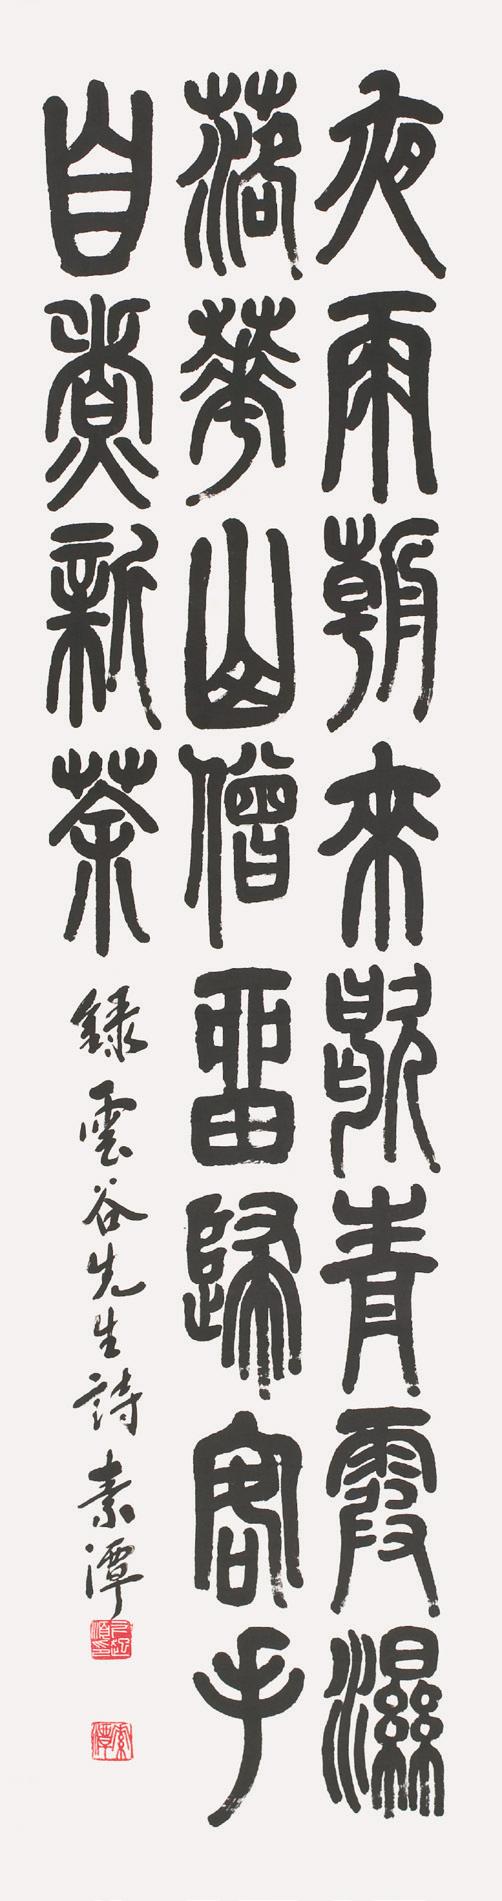 夜雨朝來歇青霞濕
落華山僧留歸客手
自煑新茶
錄雲谷先生詩 素潭
素潭